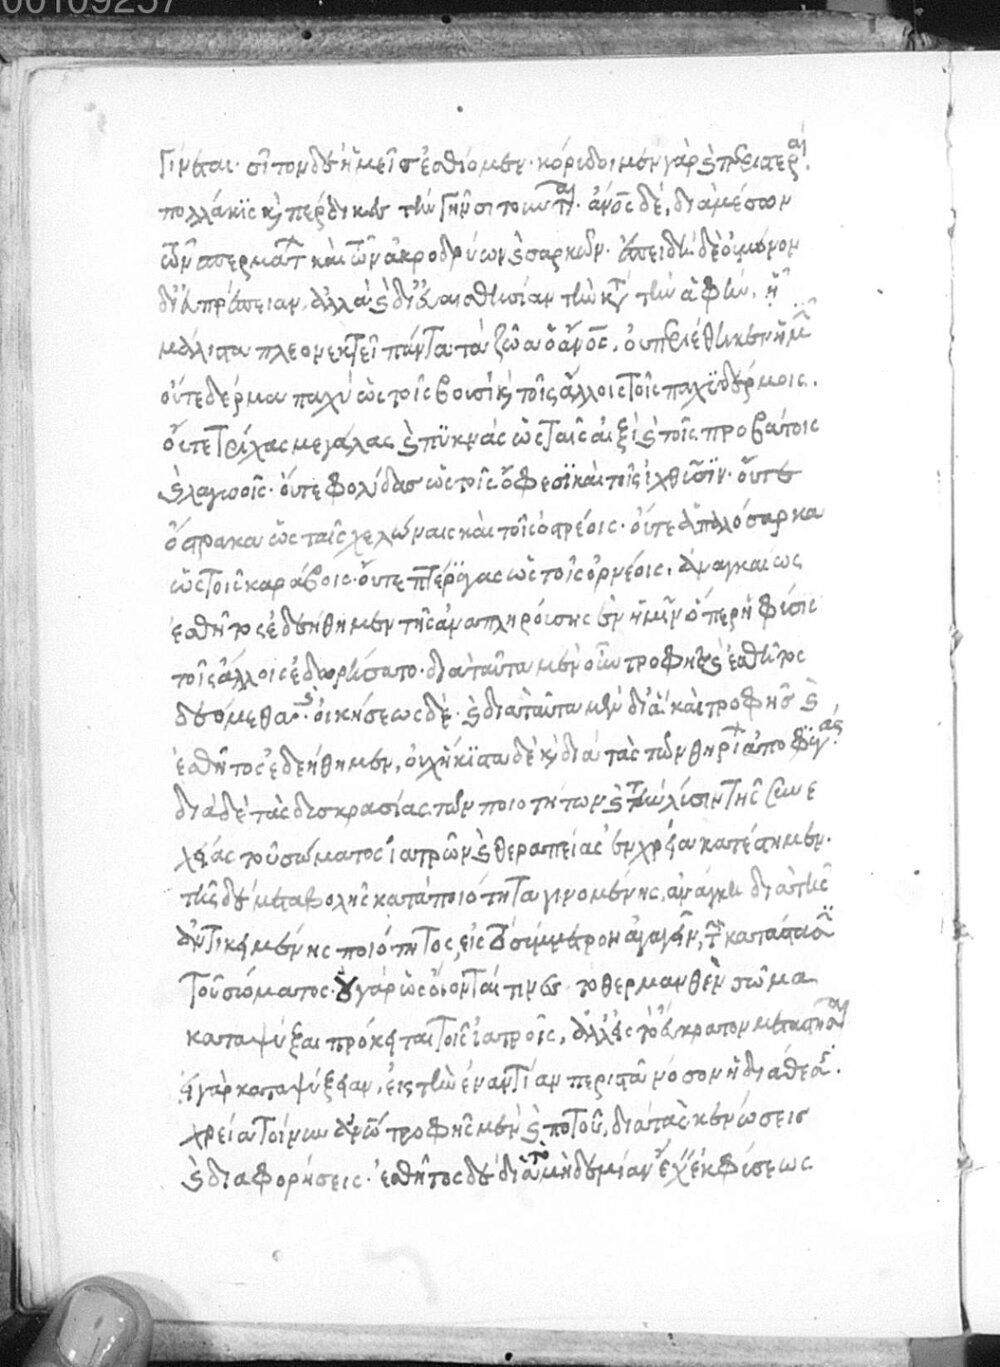 00109257
γίνεται· σῖτον δὲ ἡμεῖς ἐσθίομεν· κόριδοι μὲν γὰρ καὶ περιστεραὶ
πολλάκις καὶ πέρδικες τὴν γῆν σιτοῦνται· ἄνος δὲ, διὰ μέσων
τῶν σπερμάτ καὶ τῶν ἀκροδρύων καὶ σαρκῶν· ἐπειδὴ δὲ οὐ μόνον
δι' εὐπρέπειαν, ἀλλὰ καὶ δι' εὐαισθησίαν τὴν κατὰ τὴν ἁφὴν, ἧ
μάλιστα πλεονεκτεῖ πάντα τὰ ζῶα ὁ ἄνος, οὐ περιέθηκεν ἡμῖν
οὔτε δέρμα παχὺ ὡς τοῖς βουσὶ καὶ τοῖς ἄλλοις τοῖς παχϋδέρμοις.
οὔτε τρίχας μεγάλας καὶ πϋκνὰς ὡς ταῖς αἰξὶ καὶ τοῖς προβάτοις
καὶ λαγωοῖς· οὔτε φολίδας ὡς τοῖς ὄφεσϊ καὶ τοῖς ἰχθύσϊν· οὔτε
ὄστρακα ὡς ταῖς χελώναις καὶ τοῖς ὀστρέοις· οὔτε ἁπαλόσαρκα
ὡς τοῖς καράβοις· οὔτε πτέρϋγας ὡς τοῖς ὀρνέοις, ἀναγκαίως
ἐσθῆτος ἐδεήθημεν τῆς ἀναπληρούσης ἐν ἡμῖν ὅπερ ἡ φύσις
τοῖς ἄλλοις ἐδωρήσατο· διὰ ταῦτα μὲν οὖν τροφῆς καὶ ἐσθῆτος
δεόμεθα· καὶ οἰκήσεως δὲ· καὶ διὰ ταῦτα μὲν δι' ἃ καὶ τροφῆς καὶ
ἐσθῆτος ἐδεήθημεν, οὐχ ἥκϊστα δὲ καὶ διὰ τὰς τῶν θηρί ἀποφϋγάς.
διὰ δὲ τὰς δυσκρασίας τῶν ποιοτήτων καὶ τὴν λύσιν τῆς συνε
χείας τοῦ σώματος ἰατρῶν καὶ θεραπείας ἐν χρεία κατέστημεν.
τῆς δὲ μεταβολῆς κατὰ ποιότητα γινομένης, ἀνάγκη διὰ τῆς
ἀντικειμένης ποιότητος, εἰς τὸ σύμμετρον ἀγαγεῖν, τὴν κατάστασϊν
τοῦ σώματος· οὐ γὰρ ὡς οἴονταί τινες τὸ θερμανθὲν σῶμα
καταψύξαι πρόκειται τοῖς ἰατροῖς, ἀλλ' εἰς τὸ εὔκρατον μεταστῆσαι
εἰ γὰρ καταψύξειαν, εἰς τὴν ἐναντίαν περιστᾶ νόσον ἡ διάθεσϊς.
χρεία τοίνυν ἀνῶ τροφῆς μὲν καὶ ποτοῦ, διὰ τὰς κενώσεις
καὶ διαφορήσεις· ἐσθῆτος δὲ διὰ τὸ μηδεμίαν ἔχειν ἐκ φύσεως